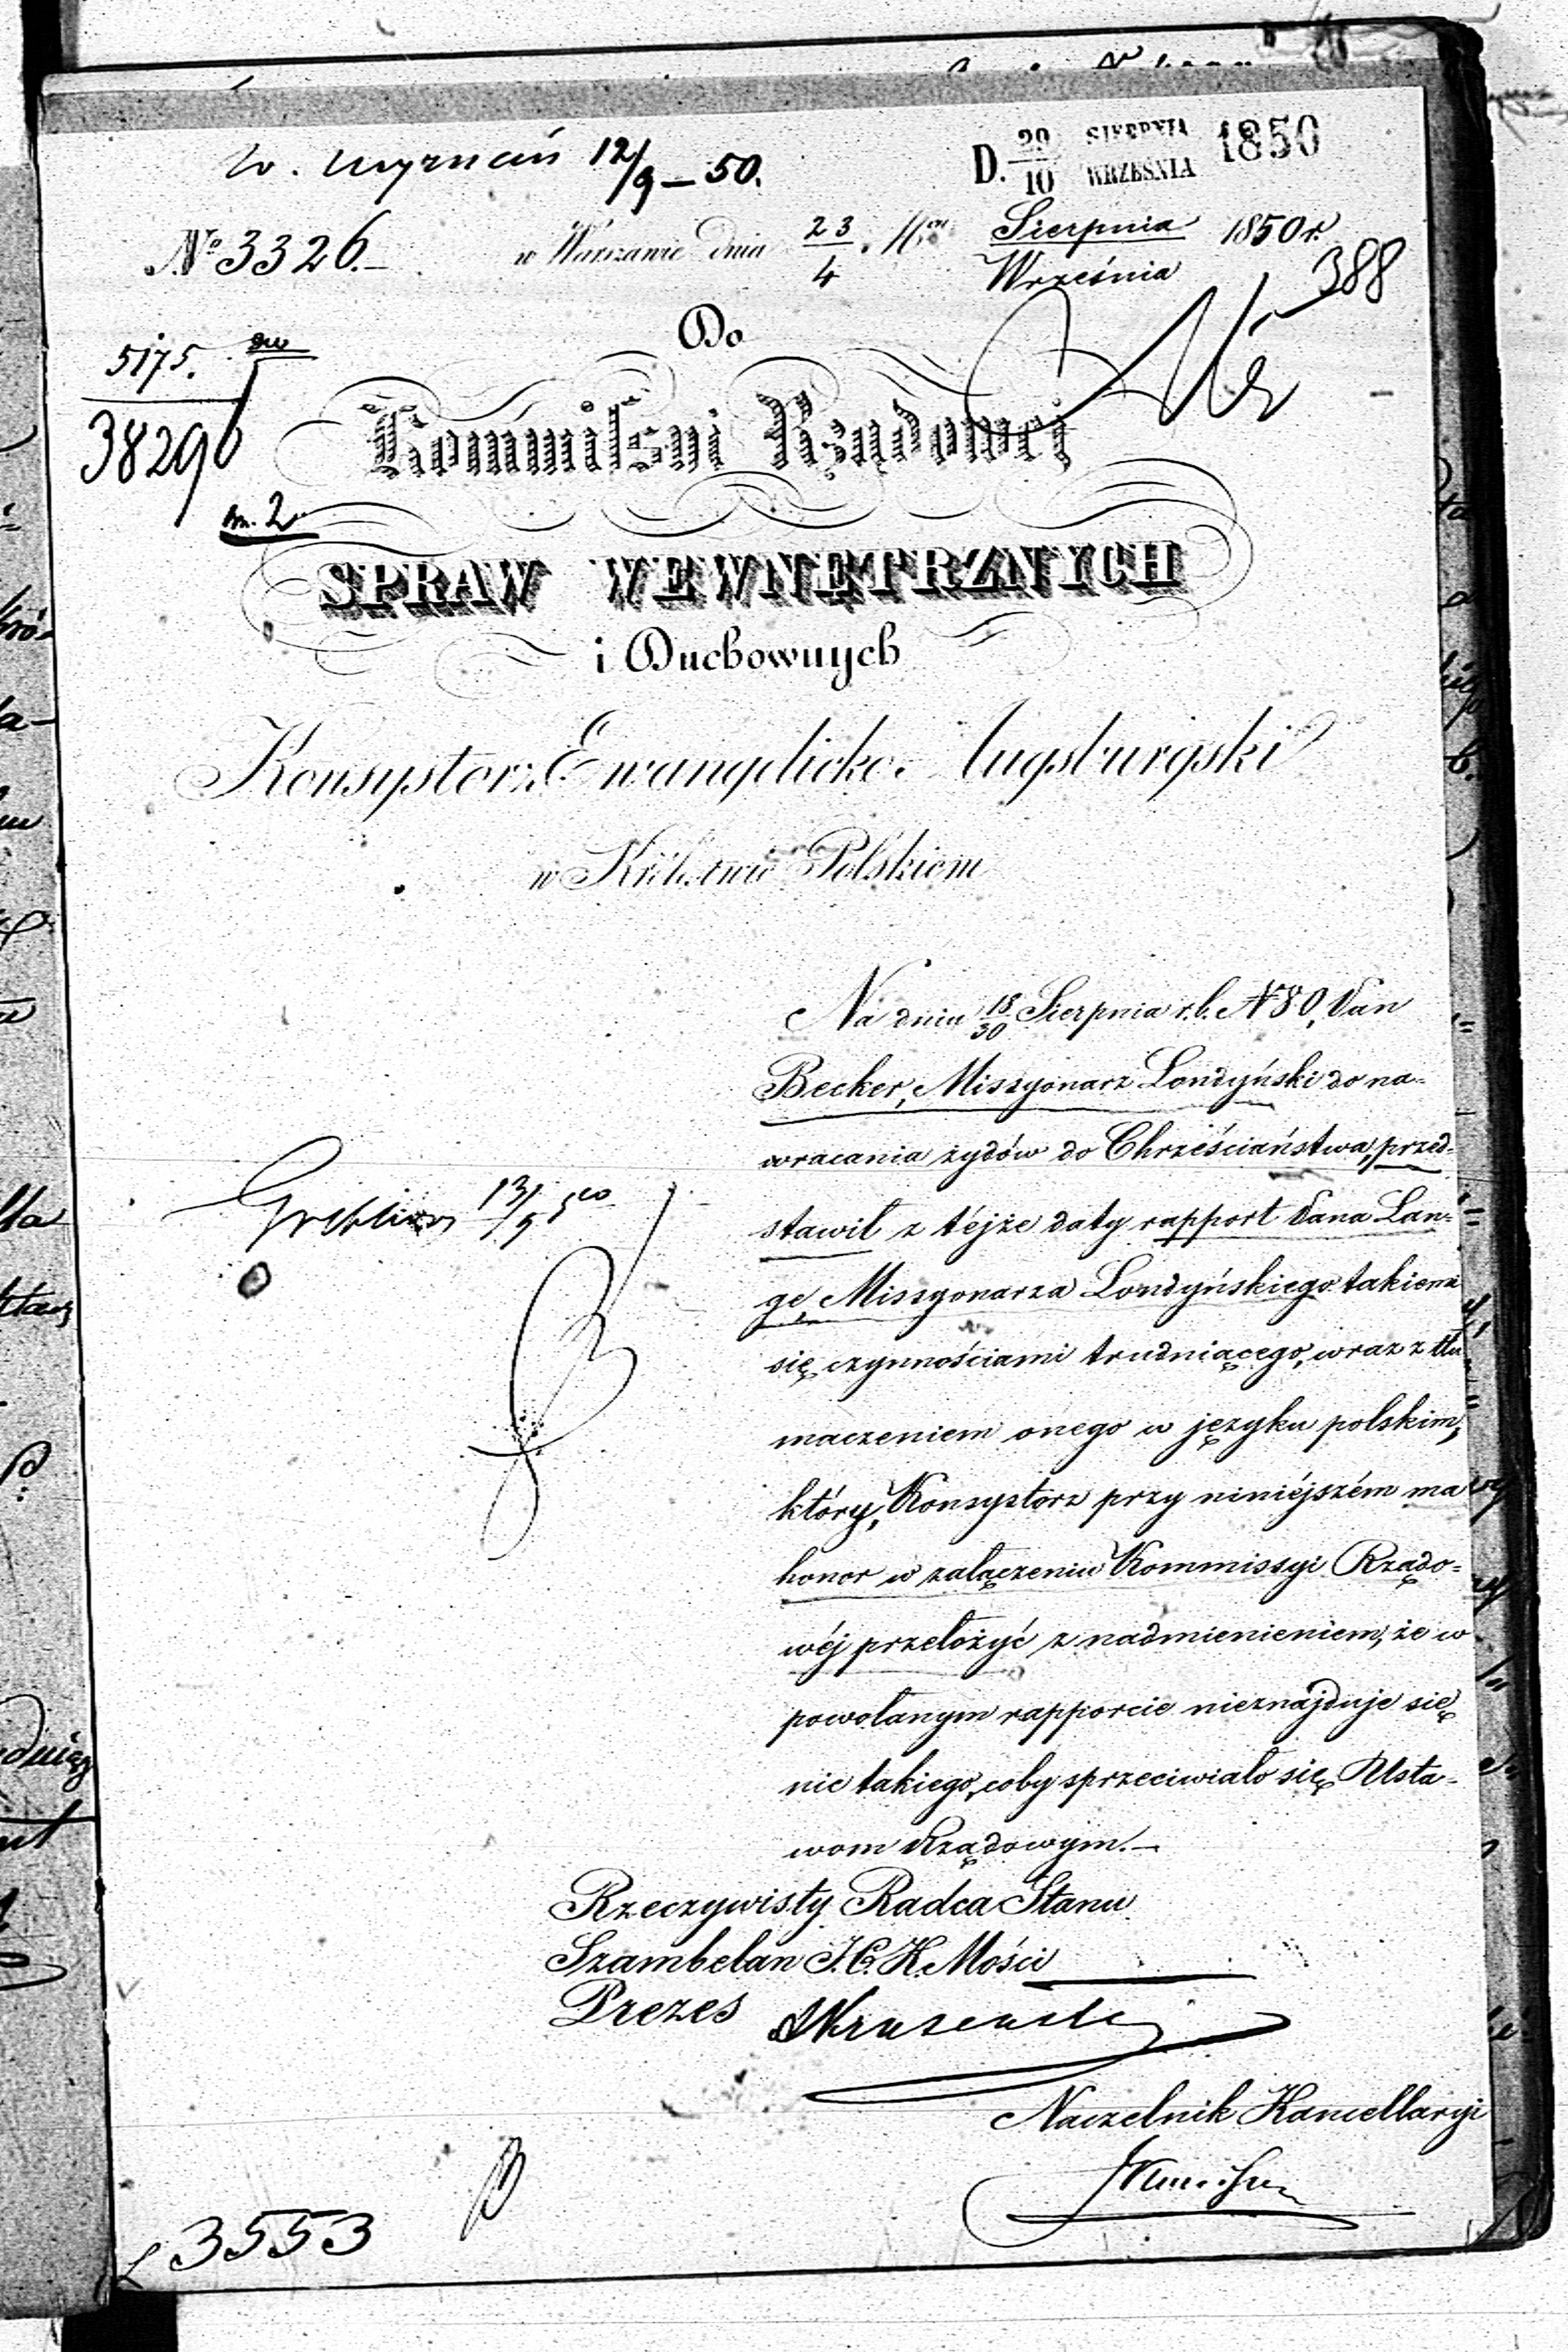 D. 29/10 SIERPNIA WRZEŚNIA 1850
12/9 – 50.
№ 3326.–
w Warszawie dnia 23/4 Sierpnia/Września 1850 r.
388
5175.
38296
Do
Kommissyi Rządowej
SPRAW WEWNĘTRZNYCH
i Duchownych
Konsystorz Ewangelicko-Augsburgski
w Królestwie Polskiem
Na dniu 18/30 Sierpnia r.b. N 80, Pan
Becker, Missyonarz Londyński do na=
wracania żydów do Chrześciaństwa, przed=
stawił z téjże daty rapport Pana Lan=
ge, Missyonarza Londyńskiego takiemi
się czynnościami trudniącego, wraz z tłu
maczeniem onego w języku polskim,
który, Konsystorz przy niniéjszém ma
honor w załączeniu Kommissyi Rządo=
wéj przełożyć z nadmienieniem, że w
powołanym rapporcie nieznajduje się
nic takiego, coby sprzeciwiało się Usta=
wom Rządowym.–
13/9 50
Rzeczywisty Radca Stanu
Szambelan J.C.K. Mości
Prezes
Naczelnik Kancellaryi
3553